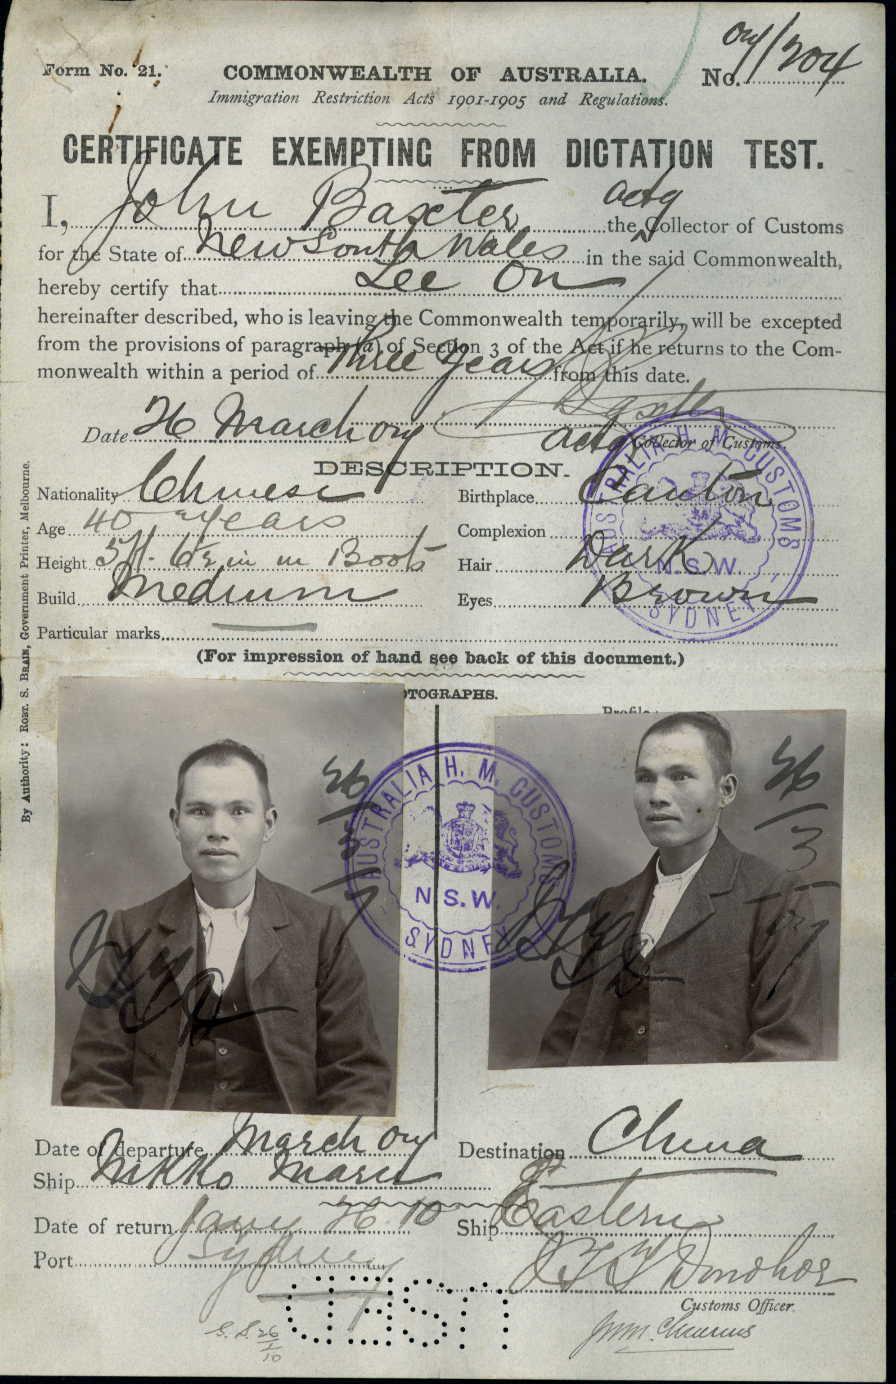 Form No. 21.
COMMONWEALTH OF AUSTRALIA.
No. 07/204
Immigration Restriction Acts 1901-1905 and Regulations.
CERTIFICATE EXEMPTING FROM DICTATION TEST.
I, John Baxter actg the Collector of Customs
for the State of New South Wales in the said Commonwealth,
hereby certify that Lee On
hereinafter described, who is leaving the Commonwealth temporarily, will be excepted
from the provisions of paragraph (a) of Section 3 of the Act if he returns to the Com-
monwealth within a period of Three Years from this date.
Baxter
Date 26 March 07
actg Collector of Customs.
DESCRIPTION.
Nationality Chinese
Birthplace Canton
Age 40 years
Complexion
Height 5ft. 6½ in in Boots
Hair Dark
Build Medium
Eyes Brown
Particular marks
(For impression of hand see back of this document.)
OTOGRAPHS.
Profile
26/3/07
26/3/07
AUSTRALIA H. M. CUSTOMS
N.S.W.
SYDNEY
AUSTRALIA H. M. CUSTOMS
N.S.W.
SYDNEY
Date of departure March 07
Destination China
Ship Nikko Maru
Date of return Jany 26.10
Ship Eastern
Port Sydney
J T T Donohoe
Customs Officer.
G. S. 26/1/10
By Authority: ROBT. S. BRAIN, Government Printer, Melbourne.